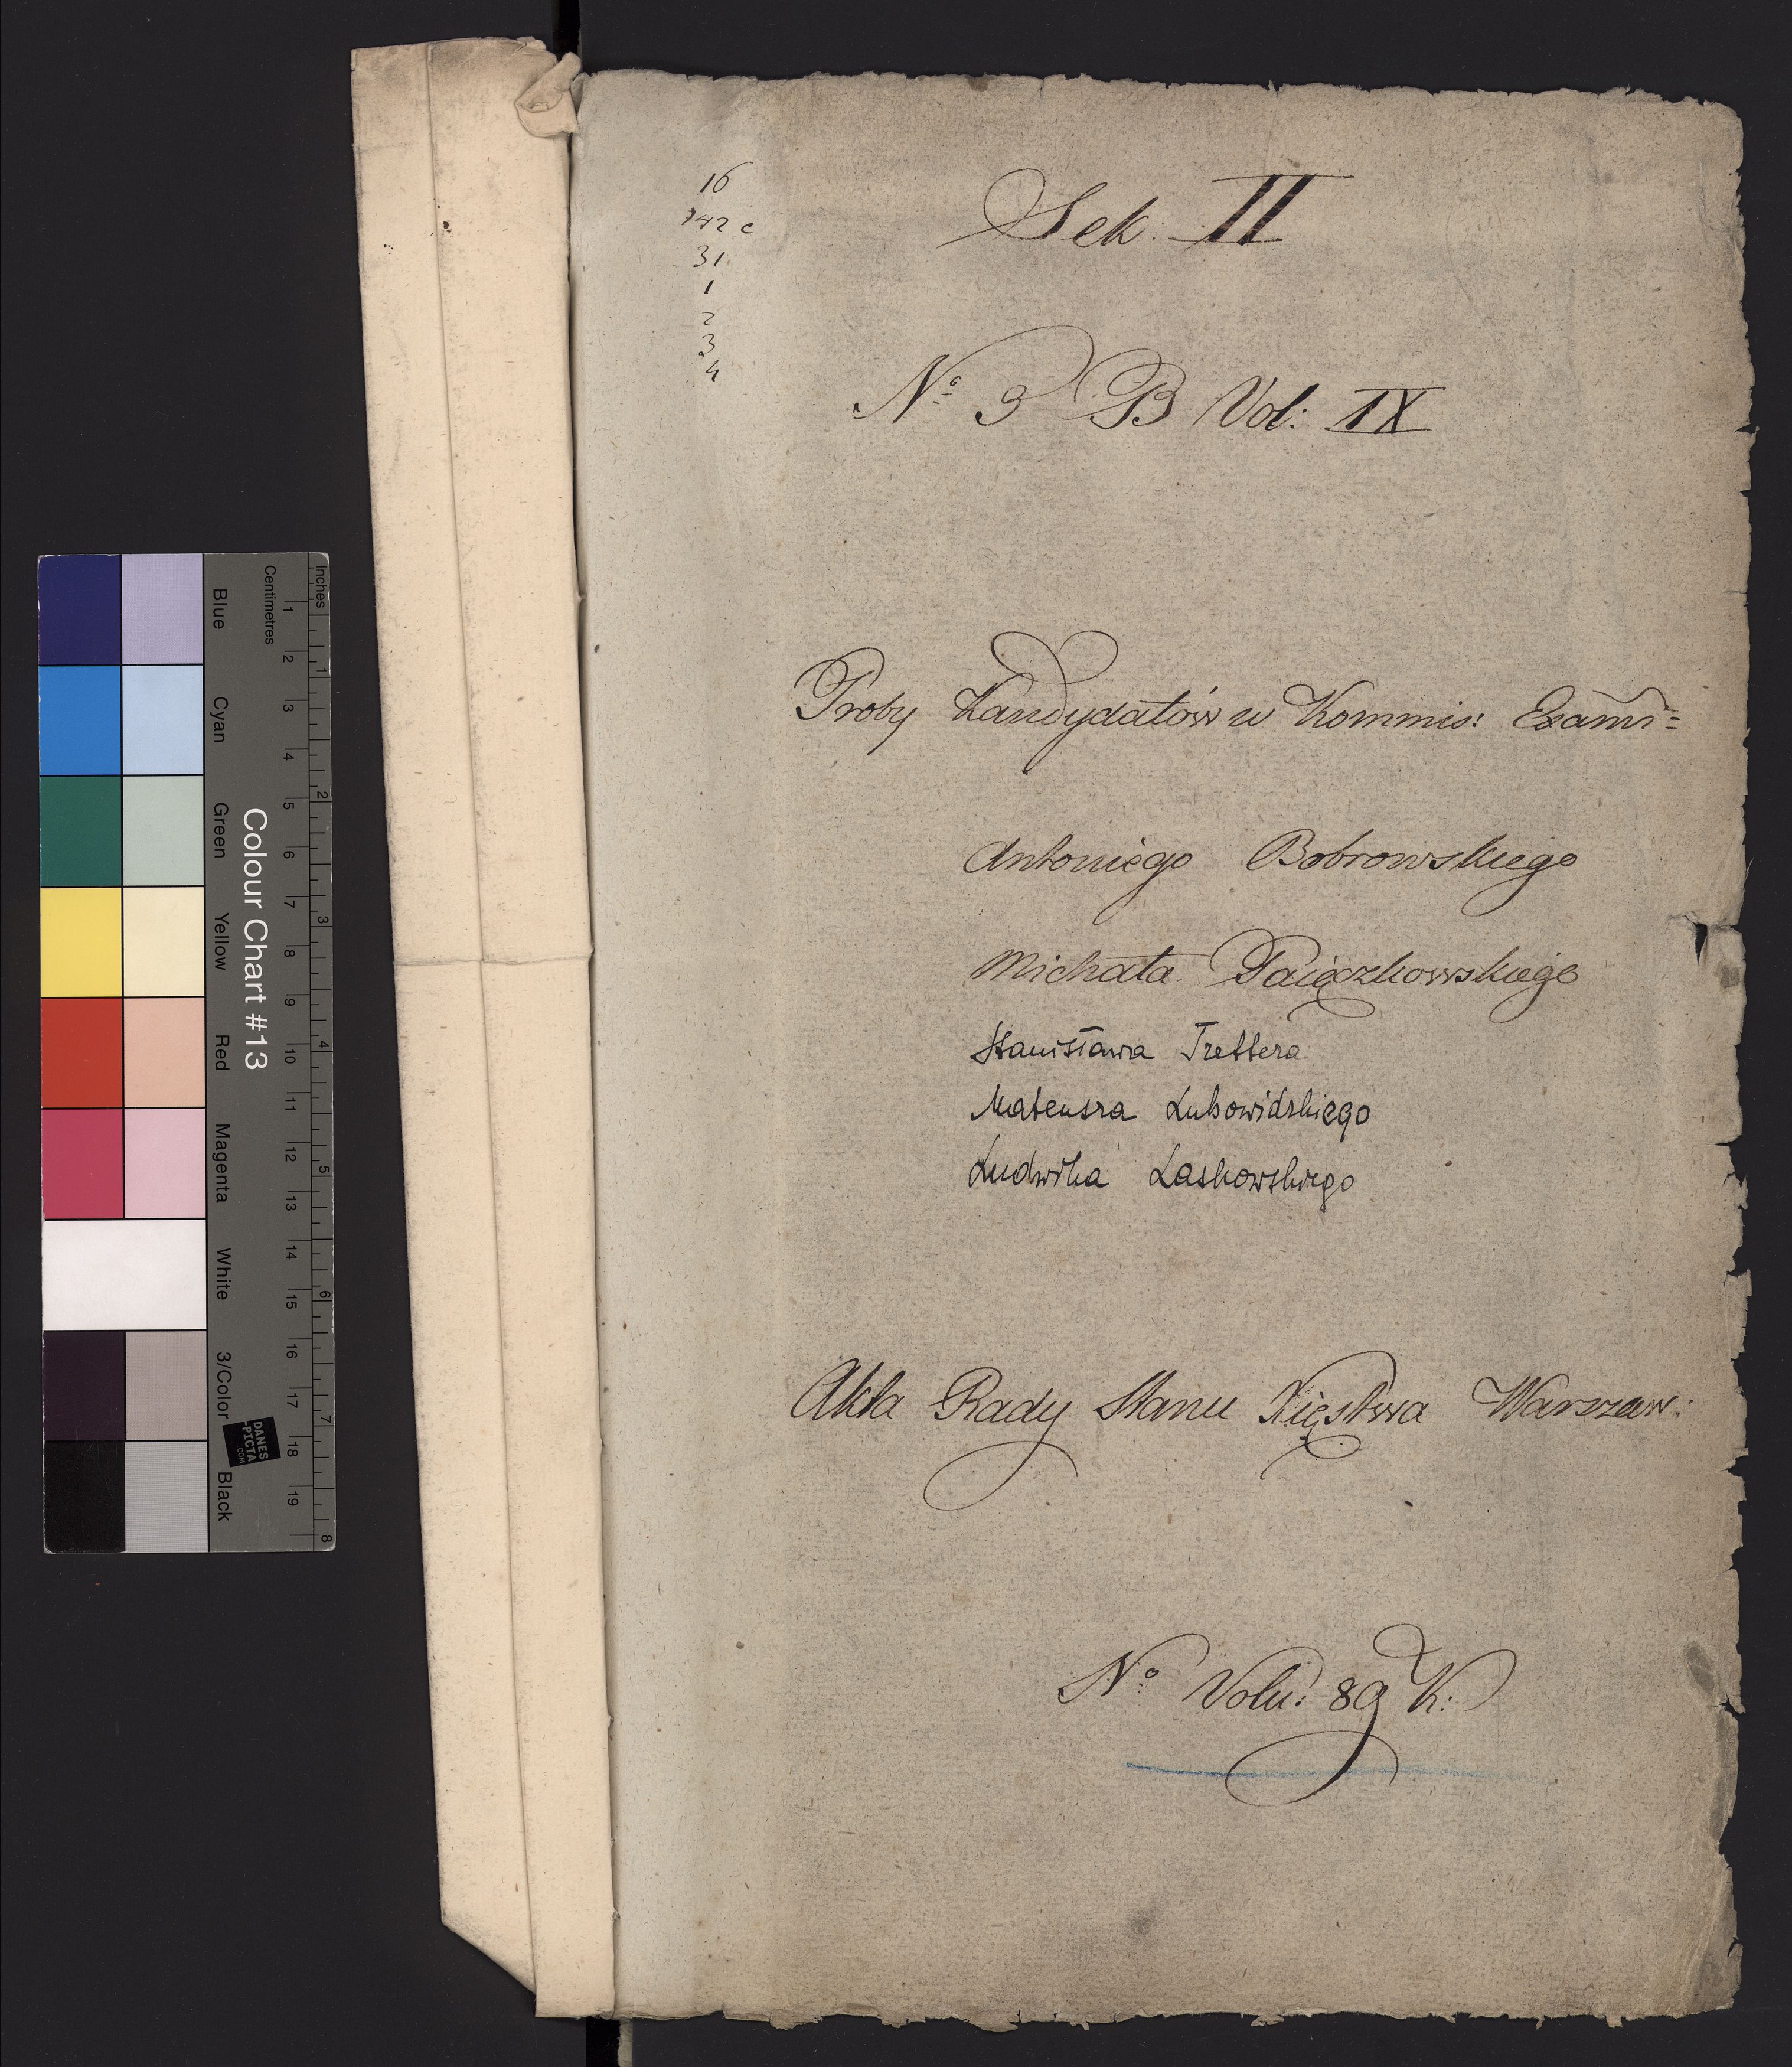 16
742 c
31
1
2
3
4
Sek: II
No 3 B Vol: IX
Proby Kandydatów w Kommis: Exami=
Antoniego Bobrowskiego
Michała Paięczkowskiego
Stanisława Trettera
Mateusza Lubowidzkiego
Ludwika Laskowskiego
Akta Rady Stanu Xięstwa Warszaw:
No Volu: 89 K:
Inches
Centimetres
1 2 3 4 5 6 7 8 9 10 11 12 13 14 15 16 17 18 19
1 2 3 4 5 6 7 8
Colour Chart #13
Blue
Cyan
Green
Yellow
Red
Magenta
White
3/Color
Black
DANES
-PICTA
.COM